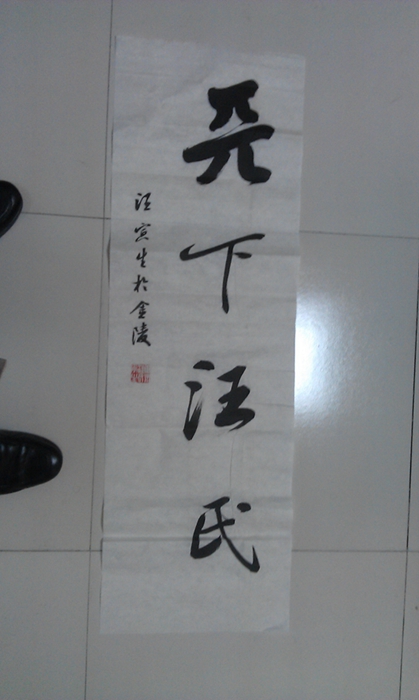 天下汪氏
汪宾生於金陵